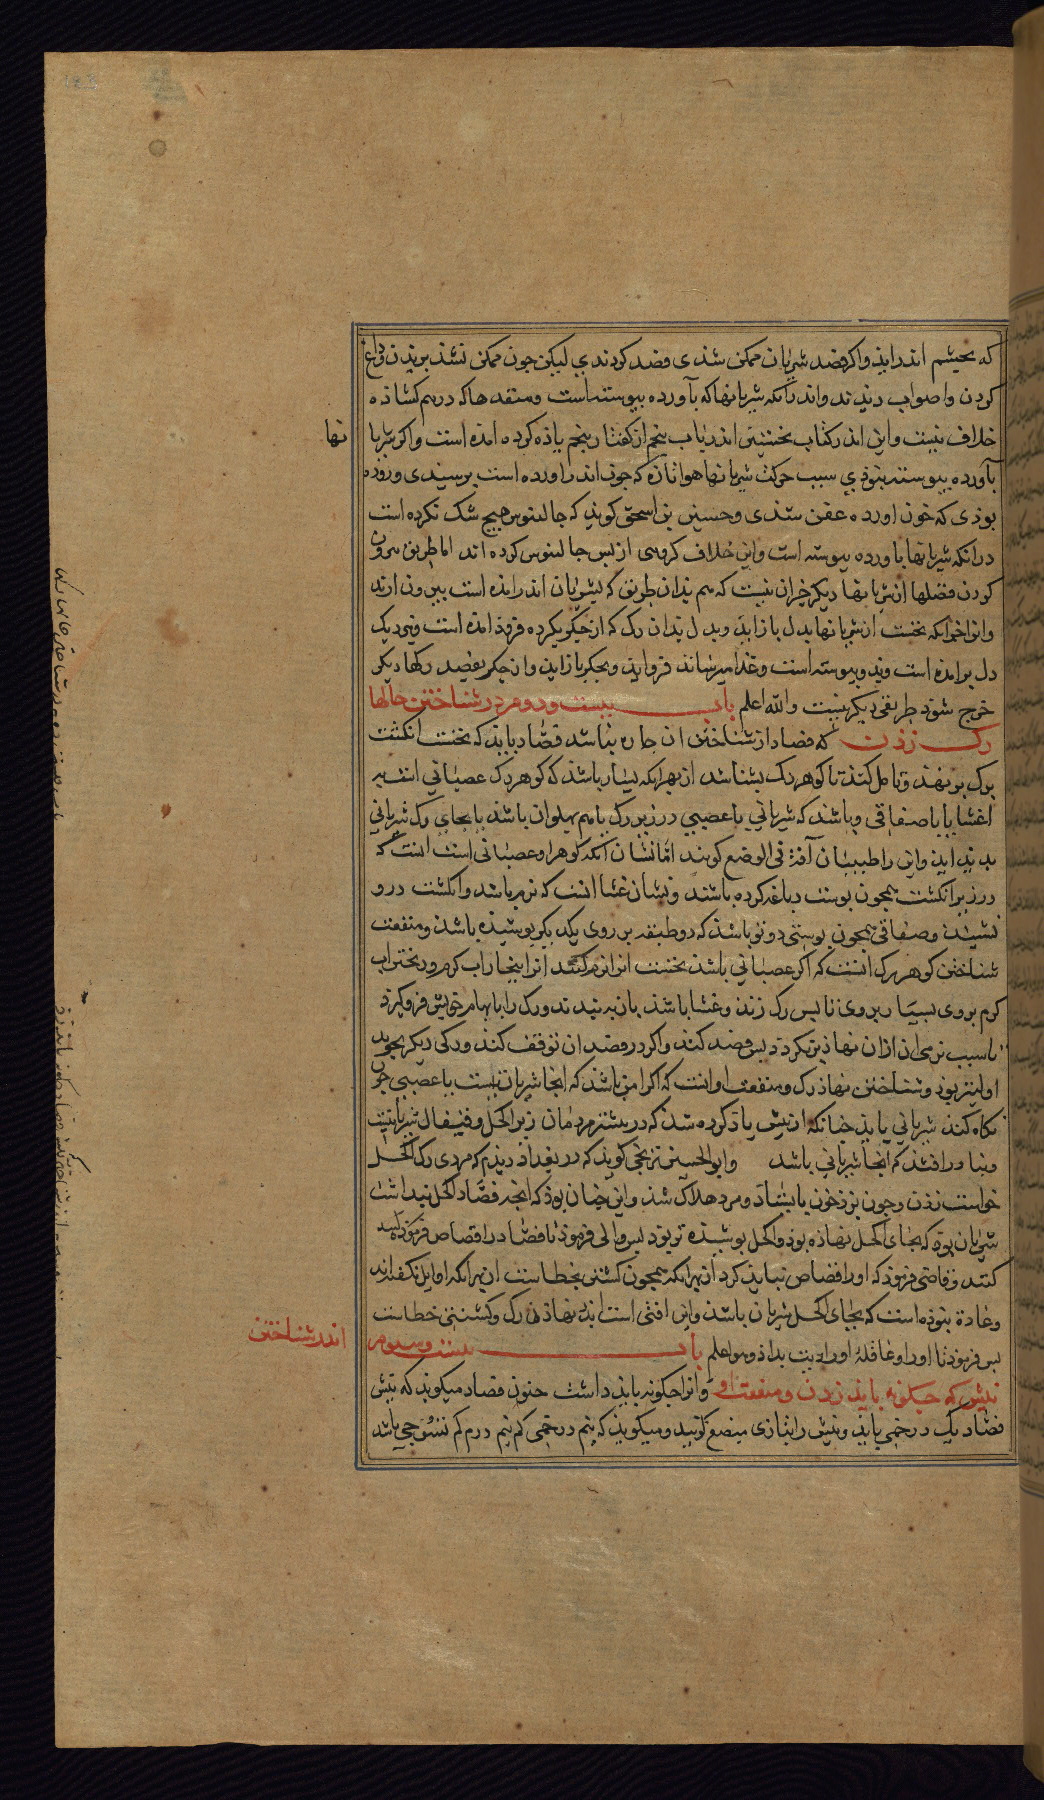 که بچشم اندر اید واکر فصد شریان ممکن شدی فصد کردندی لیکن جون ممکن نشد بریدن وداغ
کردن واصواب دیدند واندر آنکه شریانها که بآورده بیوسته است ومنفدها که درهم کشاده
خلاف نیست واین اندر کتاب نخستین اندر باب پنجم از کفتار پنجم یاذ کرده امده است واکر شریا نها
بآورده بیوسته نبودی سبب حرکت شریانها هوا تازه که جون اندر اورده است برسیدی وروزه
بوذی که خون اورده عفن شذی وحسین بن اسحق کویذ که جالینوس هیج شک نکرده است
در انکه شریانها باورده بیوسته است واین خلاف کروهی از بس جالینوس کرده اند اما طریق بیرون
کردن فضلها از شریانها دیکر جز ان نیست که هم بدان طریق که بشریان اندر امده است بیرون ارند
وانرا خر انکه نخست از شریانها بدل باز اید وبدل بدان رک که از جکر بکرده فروذ امده است ونیز دیک
دل برامده است وبد وبیوسته است وغذا میرساند فروایذ وبجکر باز اید واز جکر بفصد رکها دیکر
خرج شوذ طریقی دیکر نیست والله اعلم باب بیست ودوم در شناختن حالها
رک زدن که فصاد از شناختن ان جاره نباشد فصاد باید که نخست انکشت
برک برنهذ وتامل کند تا کوهر رک بشناسد از بهر انکه بسیار باشذ که کوهر رک عصبانی است یر
اغشایا یا صفاقی وباشد که شریانی یا عصبی در زیر رک یا هم بهلوان باشد یا بجای رک شریانی
بدید اید واین را طبیبان آفة فی الوضع کویند امّا نشان انکه کوهر او عصبانی است انست که
در زیر انکشت همجون بوست دباغه کرده باشد ونشان غشا انست که نرم باشد وانکشت درو
نشیند وصفاقی همجون بوستی دوتو باشد که دو طبقه بر روی یکدیکر بوشیده باشذ ومنفعت
شناختن کوهر رک انست که اکر عصبانی باشد نخست انرا نرم کنند انرا ببخار اب کرم وریختن اب
کرم بروی بسیار بروی تا بس رک زنذ وغشا باشذ باز به بندند ورک را بابهام خویش فروکیرد
تا سبب نرمی از ان نهاذ برنکرذد بس فصد کند واکر در فصد ان توقف کند ورکی دیکر بجوید
اولیتر بوذ وشناختن نهاذ رک ومنفعت او انست که اکر ایمن باشد که انجا شریان نیست یا عصبی جون
نکاه کند شریانی یابد جنانکه از بیش یاذ کرده شد که در بیشتر مردمان زیر اکحل وقیفال شریانیست
وبنا در افتذ که انجا شریانی باشد وابو الحسین ترنجی کوید که در بغداد دیذم که مردی رک اکحل
خواست زذن وجون بزد خون بایستاد ومرد هلاک شذ واین جنان بوذ که انجه فصّاد اکحل بنداشت
شریان بوذ که بجای اکحل نهاذه بوذ واکحل بوشیده تر بوذ بس والی فرموذ تا فصاد را قصاص فرموذ که بد
کنند وقاضی فرموذ که اورا قصاص نبایذ کرد از بهر انکه همجون کشتنی بخطاست از بهر انکه اوایل نکفته اند
وعادة نبوذه است که بجای اکحل شریان باشد واین افتی است اندر نهاذن رک وکشتنی خطاست
بس فرموذ تا اورا وعاقلهٔ اورا دیت بداذ وهو اعلم باب بیست وسیوم اندر شناختن
نیش که جکونه باید زدن ومنفعت او وانرا جکونه بایذ داشت حنون فصاد میکویذ که نیش
فصّاد یک درخمی باید ونیش را بتازی مبضع کویند ومیکویذ که نیم درخمی کم نیم درم کم نسُوجی باشد